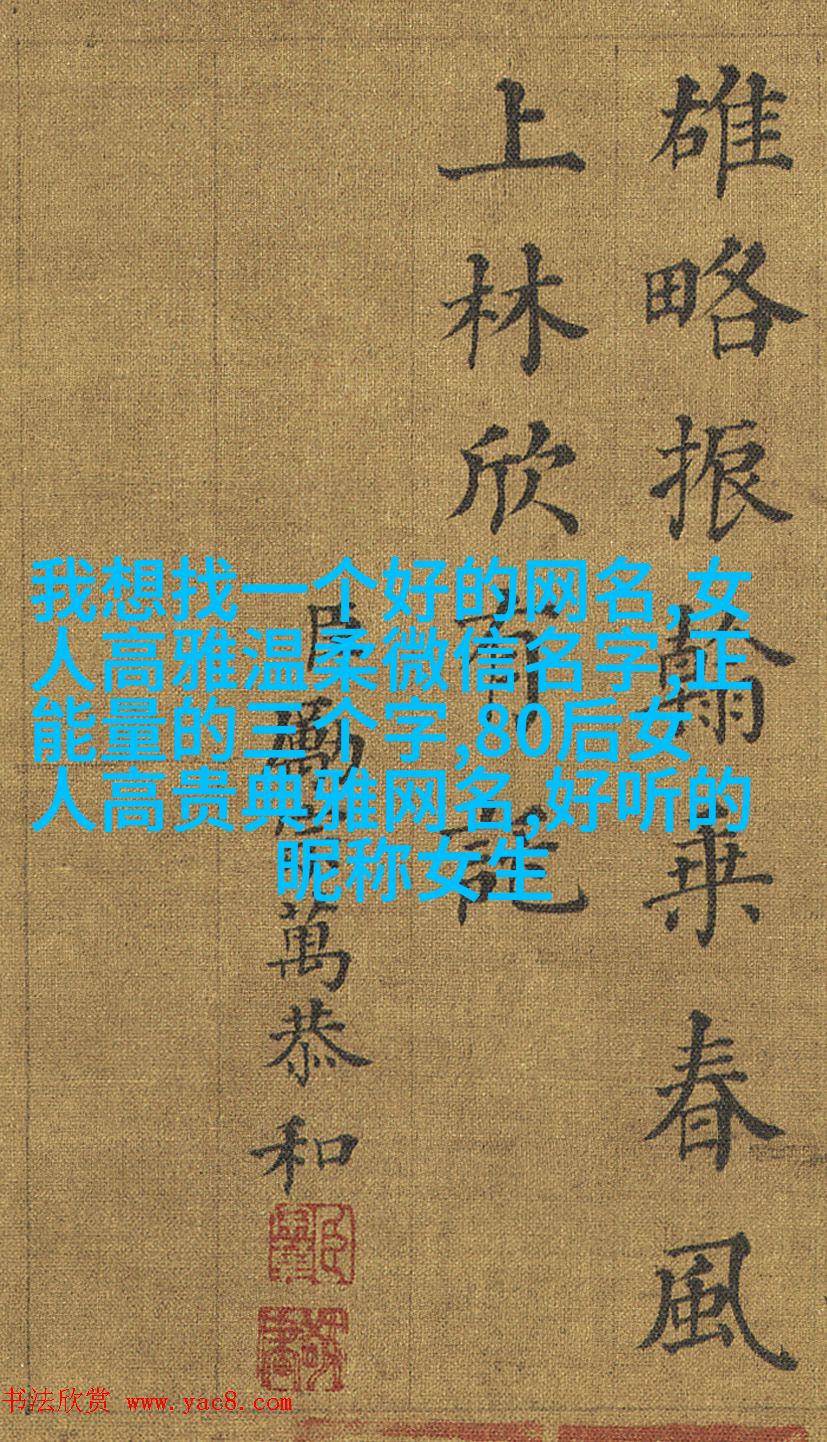 雄略振翰乗春風
上林欣有託
臣勵宗萬恭和
我想找一个好的网名,女
人高雅温柔微信名字,正
能量的三个字,80后女
人高贵典雅网名,好听的
昵称女生
书法欣赏 www.yac8.com